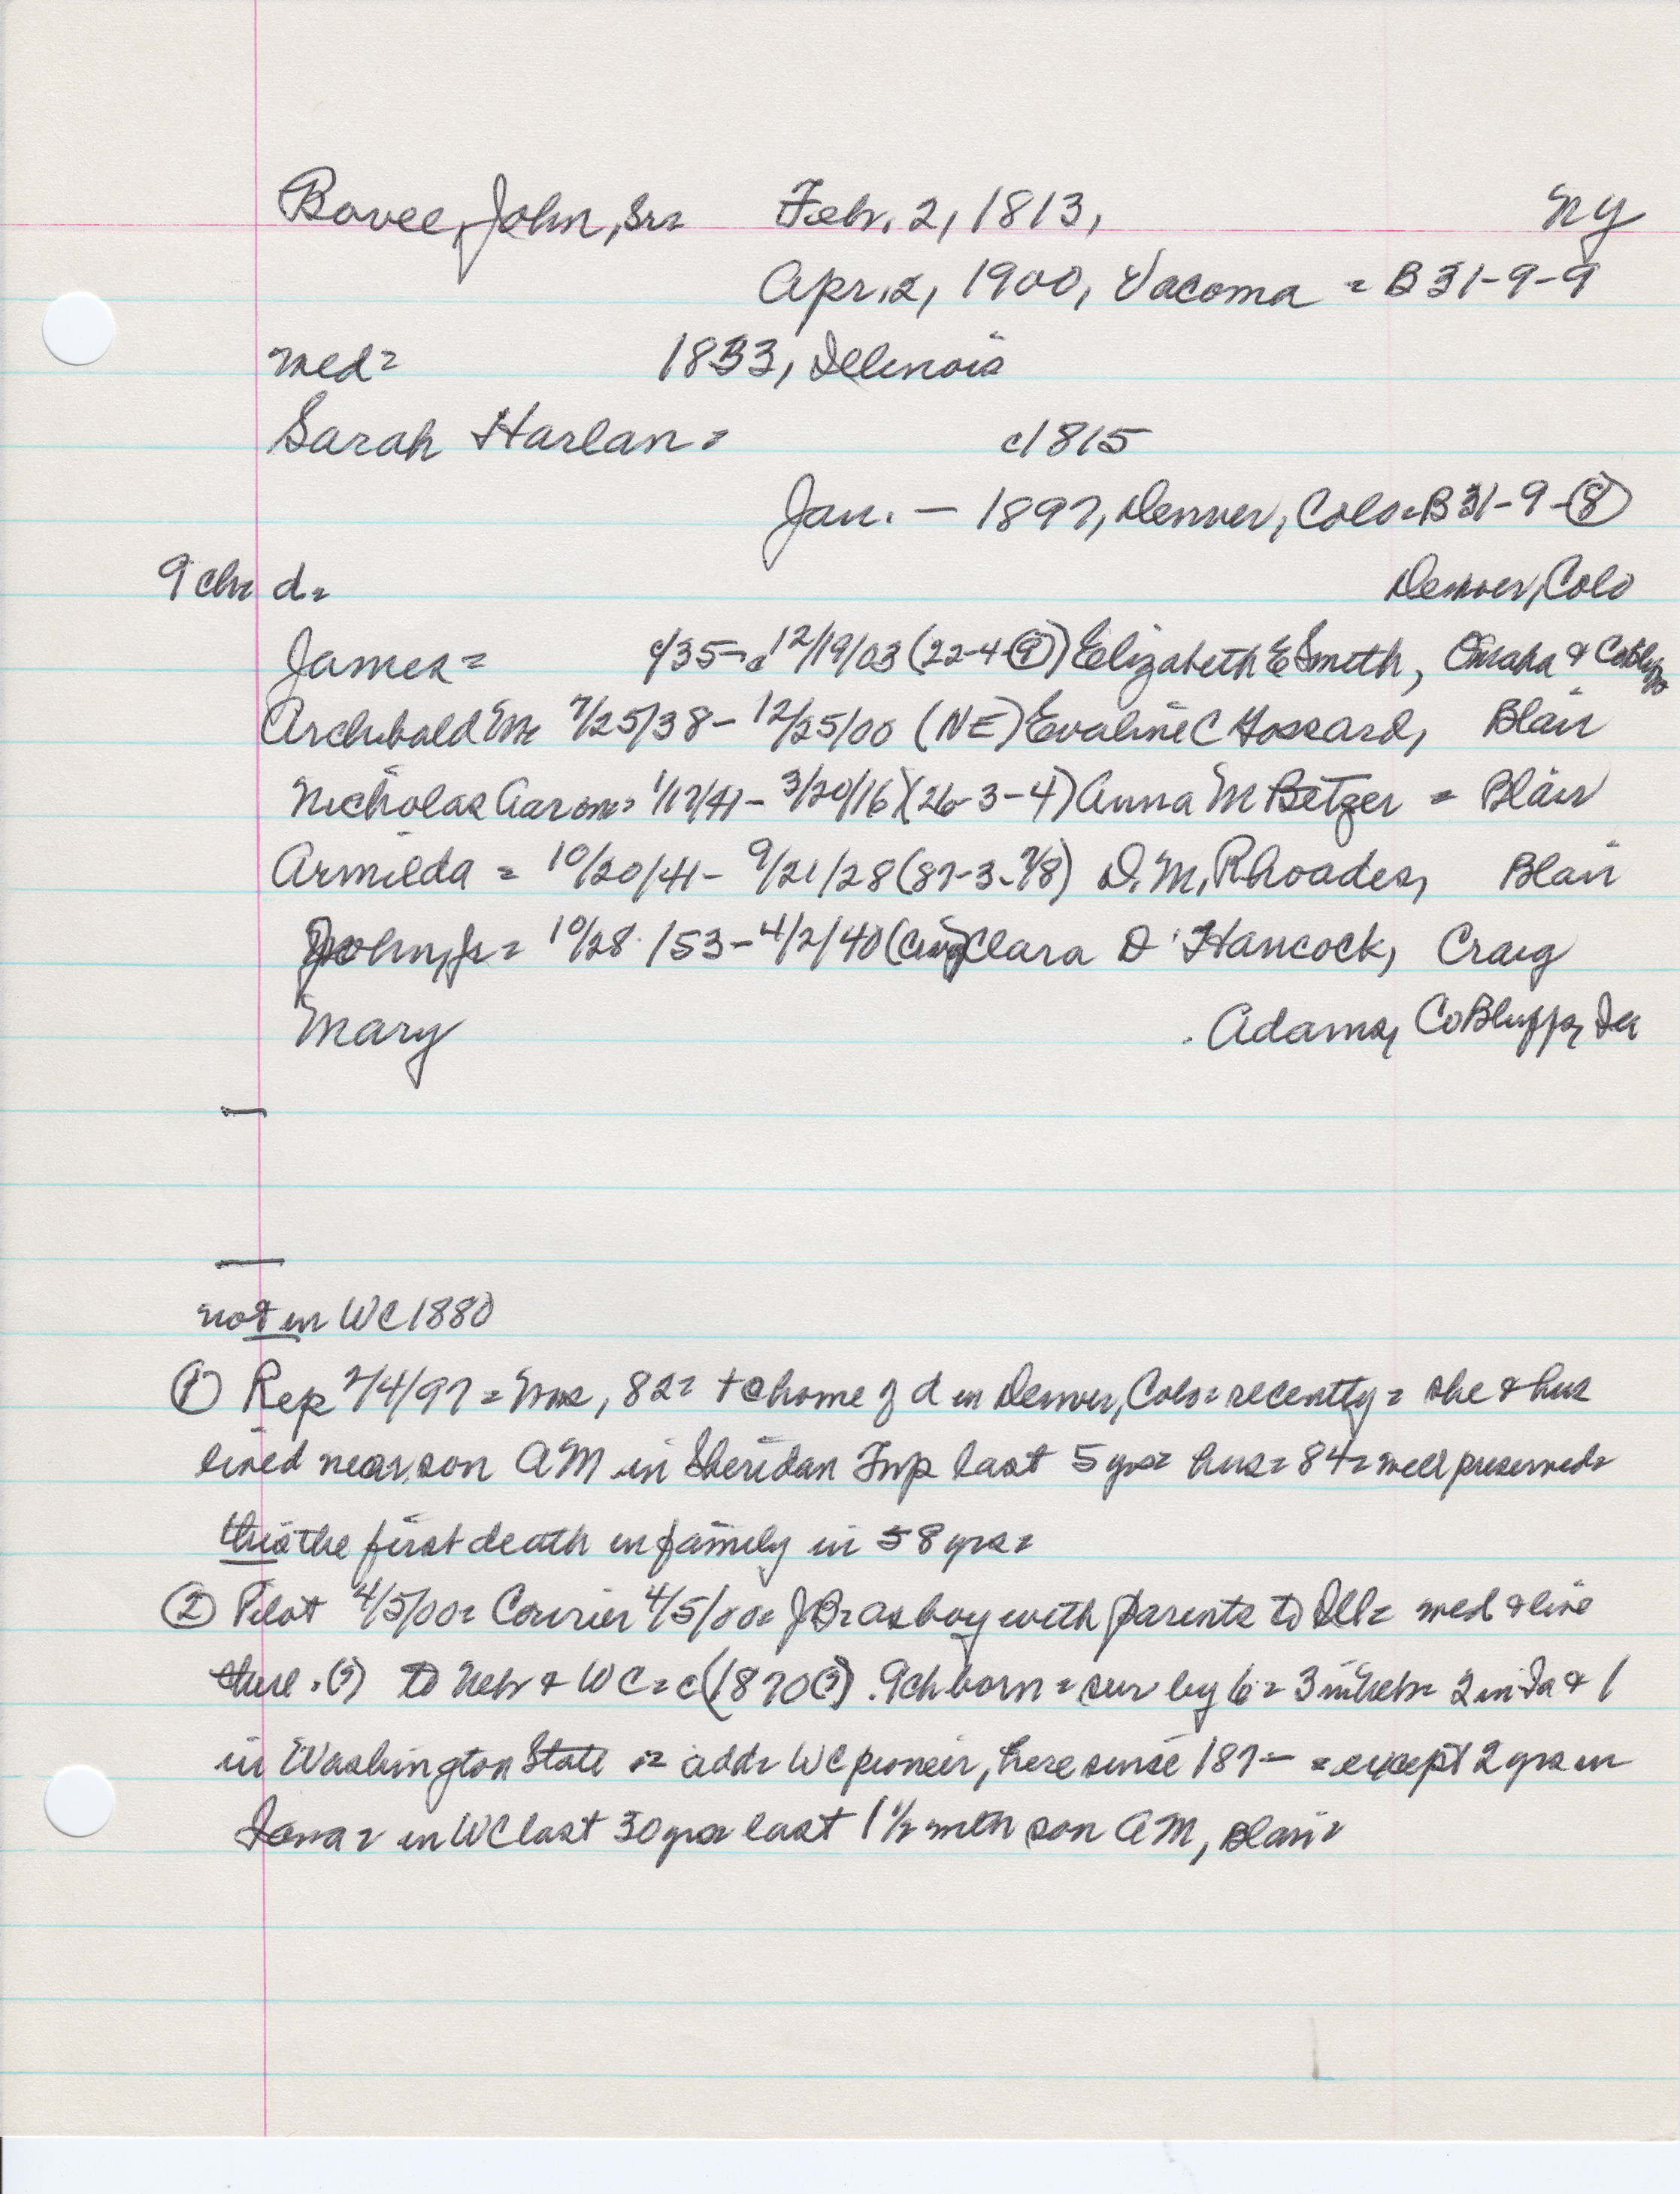 Bovee, John, Sr= Feb. 2, 1813, NY
Apr. 2, 1900, Vacoma = B 31-9-9
med= 1833, Illinois
Sarah Harlan= c1815
Jan. — 1897, Denver, Colo=B31-9-8
9 chr d= Denver, Colo
James= c/35-d 12/19/03 (22-4-9) Elizabeth E Smith, Omaha &
Archibald M= 7/25/38- 12/25/00 (NE) Evaline C Gossard, Blair
Nicholas Aaron= 1/17/41- 3/20/16 (26-3-4) Anna M Betzer = Blair
Armilda = 10/20/41- 9/21/28 (87-3-7/8) D.M. Rhoades, Blair
John, Jr= 10/28/53-4/2/40 Clara D Hancock, Craig
Mary Adams, CoBluffs, Ia
—
—
not in WC 1880
① Rep 2/4/97= Mrs, 82= + @ home of d in Denver, Colo= recently= she & hus
lived near son AM in Sheridan Twp last 5 yrs= hus=84= well preserved=
this the first death in family in 58 yrs=
② Pilot 4/5/00= Courier 4/5/00= JB= as boy with parents to Ill= med & live
there. (?) to Nebr & WC=c(1870?). 9ch born= sur by 6= 3 in Nebr= 2 in Ia & 1
in Washington State = adds WC pioneer, here since 187- = except 2 yrs in
Iowa= in WC last 30 yrs last 1 1/2 mth son AM, Blair=